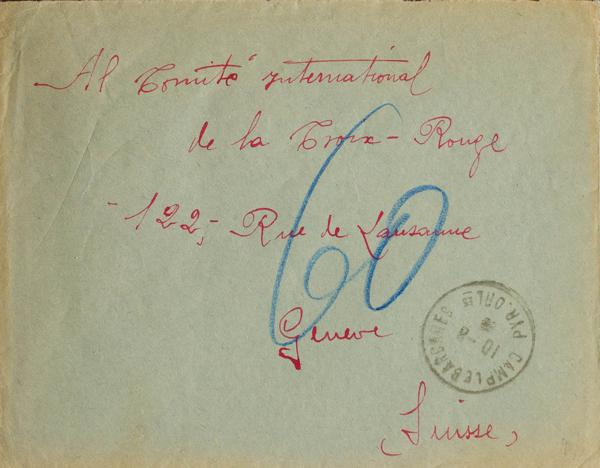 Al Comité international
de la Croix-Rouge
-122,- Rue de Lausanne
60
Geneve
(Suisse)
CAMP LE BARCARES
10-8
PYR. ORLES